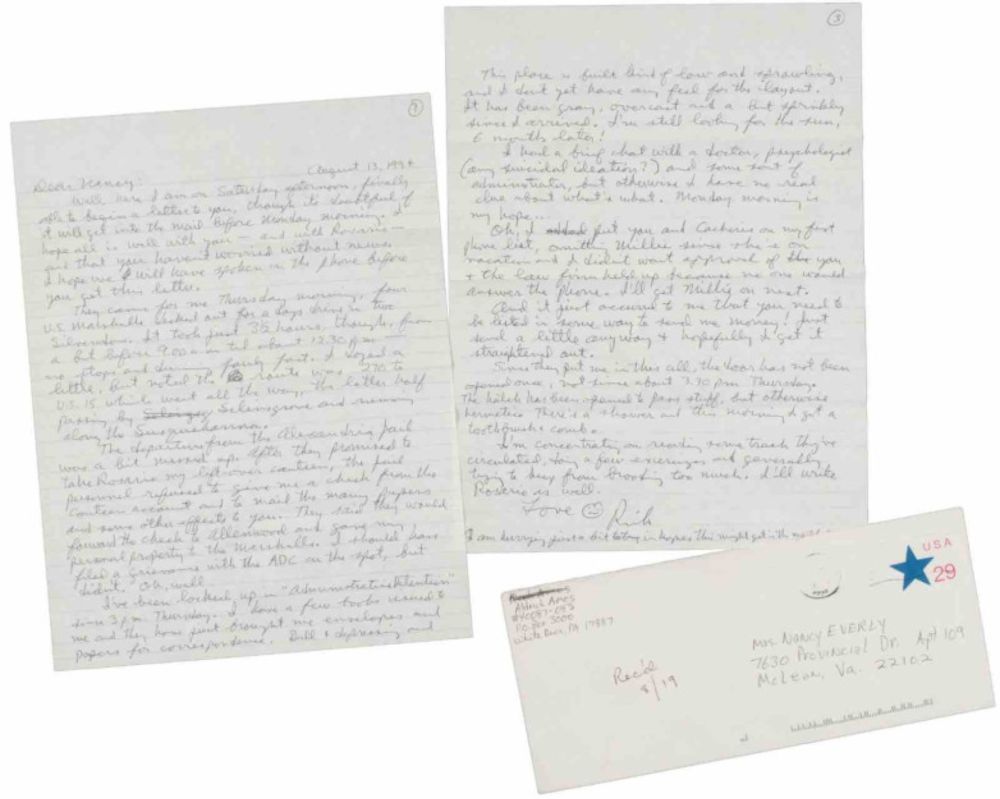 ①
August 13, 1994
Dear Nancy:
Well here I am on Saturday afternoon, finally
able to begin a letter to you, though its doubtful if
it will get into the mail before Monday morning. I
hope all is well with you — and with Rosario —
and that you haven't worried without news.
I hope we will have spoken on the phone before
you get this letter.
They came for me Thursday morning, four
U.S. Marshalls decked out for a days drive in two
Silverados. It took just 3½ hours, though, from
a bit before 9:00 a.m. til about 12:30 p.m. —
no stops and driving fairly fast. I dozed a
little, but noted the route was 270 to
U.S. 15 which went all the way, the latter half
passing by Selinsgrove and running
along the Susquehanna.
The departure from the Alexandria jail
was a bit messed up. After they promised to
take Rosario my left-over canteen, the jail
personnel refused to give me a check from the
canteen account and to mail the many papers
and some other effects to you. They said they would
forward the check to Allenwood and gave my
personal property to the Marshalls. I should have
filed a grievance with the ADC on the spot, but
didn't. Oh, well.
I've been locked up in "Administrative Detention"
since 3 pm Thursday. I have a few books issued to
me and they have just brought me envelopes and
papers for correspondence. Dull & depressing and
③
This place is built kind of low and sprawling,
and I don't yet have any feel for the layout.
It has been gray, overcast and a bit sprinkly
since I arrived. I'm still looking for the sun,
6 months later!
I had a brief chat with a doctor, psychologist
(any suicidal ideation?) and some sort of
administrator, but otherwise I have no real
clue about what's what. Monday morning is
my hope...
Oh, I put you and Cacheris on my first
phone list, omitting Millie since she's on
vacation and I didn't want approval of you
+ the law firm held up because no one would
answer the phone. I'll get Millie on next.
And it just occured to me that you need to
be listed in some way to send me money! Just
send a little anyway & hopefully I get it
straightened out.
Since they put me in this cell, the door has not been
opened once, not since about 3:30 pm Thursday.
The hatch has been opened to pass stuff, but otherwise
hermetic. There's a shower and this morning I got a
toothbrush & comb.
I'm concentrating on reading some trash they've
circulated, doing a few exercises and generally
trying to keep from brooding too much. I'll write
Rosario as well.
Love ☺ Rick
I am hurrying just a bit today in hopes this might get in the
Aldrich Ames
#40087-083
P.O. Box 3000
White Deer, PA 17887
USA
29
Rec'd
8/19
Mrs. NANCY EVERLY
7630 Provincial Dr. Apt 109
McLean, Va. 22102